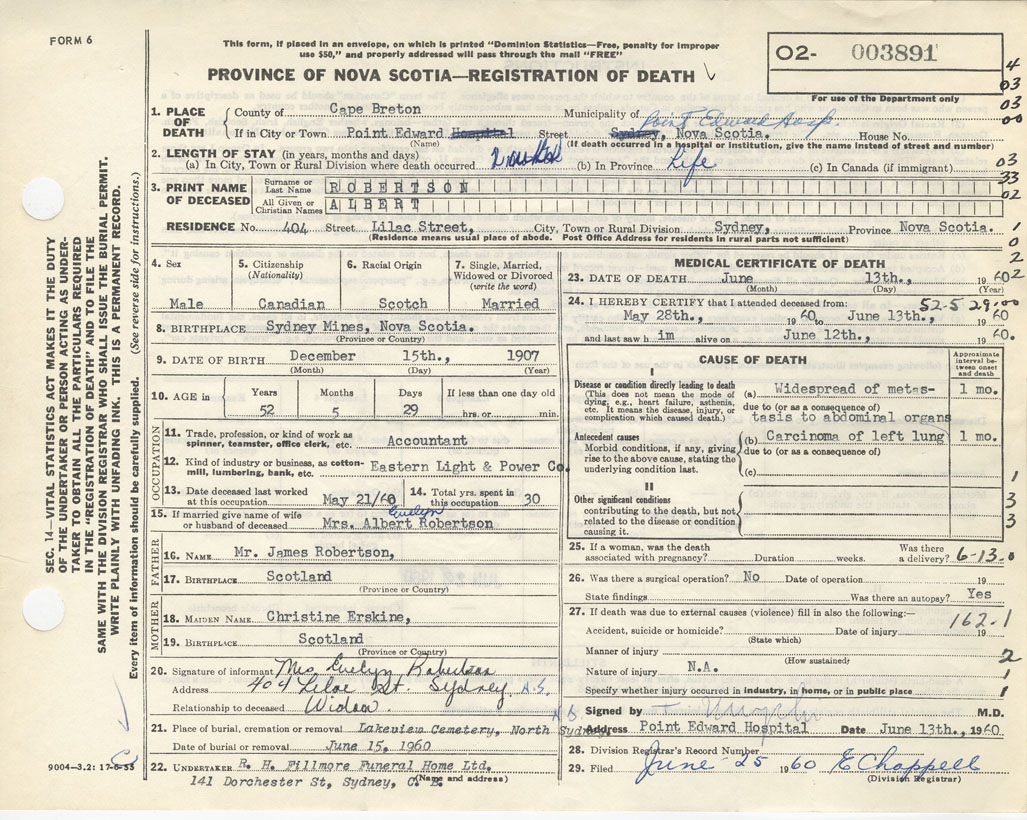 FORM 6
This form, if placed in an envelope, on which is printed "Dominion Statistics—Free, penalty for improper
use $50," and properly addressed will pass through the mail "FREE"
PROVINCE OF NOVA SCOTIA—REGISTRATION OF DEATH
02- 003891
For use of the Department only
4
03
03
00
1. PLACE OF DEATH
County of Cape Breton Municipality of Point Edward Hosp.
If in City or Town Point Edward Hospital Street Sydney, Nova Scotia. House No.
(Name) (If death occurred in a hospital or institution, give the name instead of street and number)
2. LENGTH OF STAY (in years, months and days)
(a) In City, Town or Rural Division where death occurred (b) In Province Life (c) In Canada (if immigrant) 03
33
3. PRINT NAME OF DECEASED
Surname or Last Name ROBERTSON
All Given or Christian Names ALBERT 02
RESIDENCE No. 404 Street Lilac Street, City, Town or Rural Division Sydney, Province Nova Scotia. 1
(Residence means usual place of abode. Post Office Address for residents in rural parts not sufficient) 0
2
02
4. Sex
Male
5. Citizenship
(Nationality)
Canadian
6. Racial Origin
Scotch
7. Single, Married,
Widowed or Divorced
(write the word)
Married
8. BIRTHPLACE Sydney Mines, Nova Scotia.
(Province or Country)
9. DATE OF BIRTH December 15th., 1907
(Month) (Day) (Year)
10. AGE in
Years Months Days If less than one day old
52 5 29 hrs. or min.
OCCUPATION
11. Trade, profession, or kind of work as
spinner, teamster, office clerk, etc. Accountant
12. Kind of industry or business, as cotton-
mill, lumbering, bank, etc. Eastern Light & Power Co.
13. Date deceased last worked
at this occupation May 21/60
14. Total yrs. spent in
this occupation 30
15. If married give name of wife
or husband of deceased Mrs. Albert Robertson
Evelyn
FATHER
16. NAME Mr. James Robertson,
17. BIRTHPLACE Scotland
(Province or Country)
MOTHER
18. MAIDEN NAME Christine Erskine,
19. BIRTHPLACE Scotland
(Province or Country)
20. Signature of informant Mrs Evelyn Robertson
Address 404 Lilac St. Sydney N.S.
Relationship to deceased Widow
21. Place of burial, cremation or removal Lakeview Cemetery, North Sydney,
N.S.
Date of burial or removal June 15, 1960
22. UNDERTAKER R. H. Fillmore Funeral Home Ltd.
141 Dorchester St, Sydney, C. B.
(Name and address)
MEDICAL CERTIFICATE OF DEATH
23. DATE OF DEATH June 13th., 1960
(Month) (Day) (Year)
24. I HEREBY CERTIFY that I attended deceased from: 52-5 29:00
May 28th., 1960 to June 13th., 1960
and last saw h im alive on June 12th., 1960.
CAUSE OF DEATH
Approximate
interval be-
tween onset
and death
I
Disease or condition directly leading to death
(This does not mean the mode of
dying, e.g., heart failure, asthenia,
etc. It means the disease, injury, or
complication which caused death.)
(a) Widespread of metas- 1 mo.
due to (or as a consequence of)
tasis to abdominal organs
Antecedent causes
Morbid conditions, if any, giving
rise to the above cause, stating the
underlying condition last.
(b) Carcinoma of left lung 1 mo.
due to (or as a consequence of)
(c)
1
II
Other significant conditions
contributing to the death, but not
related to the disease or condition
causing it.
3
3
25. If a woman, was the death
associated with pregnancy? Duration weeks. Was there
a delivery? 6-13-0
26. Was there a surgical operation? No Date of operation 19
State findings Was there an autopsy? Yes
27. If death was due to external causes (violence) fill in also the following:— 162.1
Accident, suicide or homicide? Date of injury 19
(State which)
Manner of injury 2
(How sustained)
Nature of injury N.A. 1
Specify whether injury occurred in industry, in home, or in public place 1
Signed by M.D.
Address Point Edward Hospital Date June 13th., 1960
28. Division Registrar's Record Number
29. Filed June 25 1960 E Chappell
(Division Registrar)
SEC. 14—VITAL STATISTICS ACT MAKES IT THE DUTY
OF THE UNDERTAKER OR PERSON ACTING AS UNDER-
TAKER TO OBTAIN ALL THE PARTICULARS REQUIRED
IN THE "REGISTRATION OF DEATH" AND TO FILE THE
SAME WITH THE DIVISION REGISTRAR WHO SHALL ISSUE THE BURIAL PERMIT.
WRITE PLAINLY WITH UNFADING INK. THIS IS A PERMANENT RECORD.
Every item of information should be carefully supplied. (See reverse side for instructions.)
9004—3.2: 17-6-55